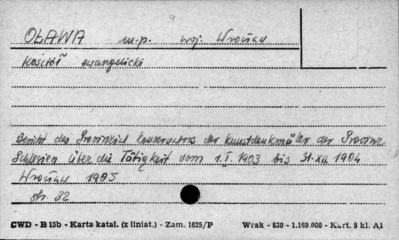 9
OŁAWA m.p. woj. Wrocław
Kościół ewangelicki
Bericht des Provinzial Konservators der Kunstdenkmäler der Provinz
Schlesien über die Tätigkeit vom 1.I. 1903 bis 31.XII. 1904
Wrocław 1905
str. 32
CWD - B 15b - Karta katal. (z liniat.) - Zam. 1625/P Wrak - 630 - 1.169.000 - Kart. 5 kl. A1